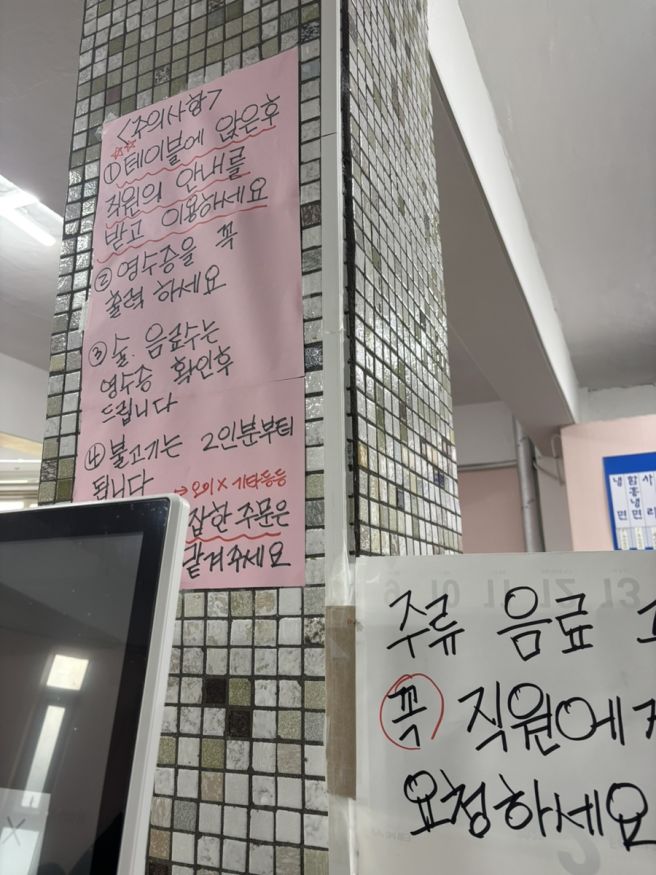 <주의사항>
① 테이블에 앉은후
직원의 안내를
받고 이용하세요
② 영수증을 꼭
출력 하세요
③ 술. 음료수는
영수증 확인후
드립니다
④ 불고기는 2인분부터
됩니다
→ 오이X 기타등등
잡한 주문은
같겨주세요
주류 음료
꼭 직원에게
요청하세요
냉면
함흥냉면
사리